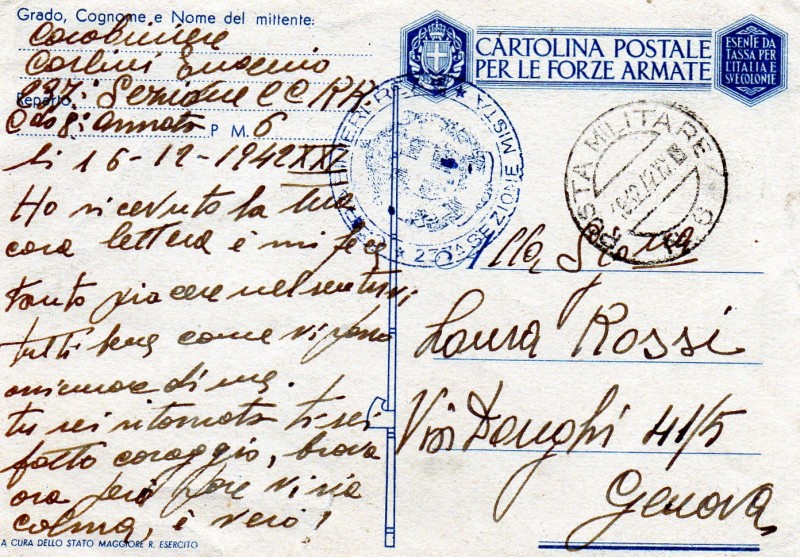 Grado, Cognome e Nome del mittente:
Carabiniere
Corlini Eugenio
237ª Sezione CC RR
Reparto
C do 8ª Armata P M. 6
li 16-12-1942 XXI
Ho ricevuto la tua
cara lettera è mi fece
tanto piacere nel sentirvi
tutti bene come vi posso
di me.
tu sei ritornata ti sei
fatto coraggio, brava
ora però pare vi sia
calma, è vero!
A CURA DELLO STATO MAGGIORE R. ESERCITO
CARTOLINA POSTALE
PER LE FORZE ARMATE
ESENTE DA
TASSA PER
L'ITALIA E
SVE COLONIE
237A SEZIONE MISTA
POSTA MILITARE
Alla Sig.na
Laura Rossi
Via Donghi 41/5
Genova